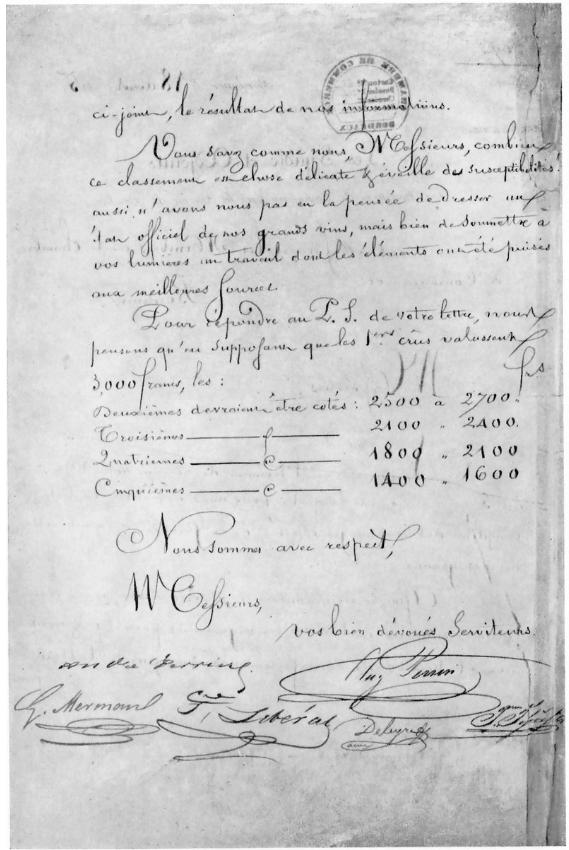 ci-joint, le résultat de nos informations.
Vous savez comme nous, Messieurs, combien
ce classement est chose délicate & éveille des susceptibilités;
aussi n'avons nous pas eu la pensée de dresser un
état officiel de nos grands vins, mais bien de soumettre à
vos lumières un travail dont les éléments ont été puisés
aux meilleures sources.
Pour répondre au P. S. de votre lettre, nous
pensons qu'en supposant que les 1ers crûs valussent
3,000 francs, les : frs
Deuxièmes devraient être cotés : 2500 à 2700.
Troisièmes 2100 " 2400.
Quatrièmes 1800 " 2100
Cinquièmes 1400 " 1600
Nous sommes avec respect,
Messieurs,
vos bien dévoués Serviteurs.
G. Mermand